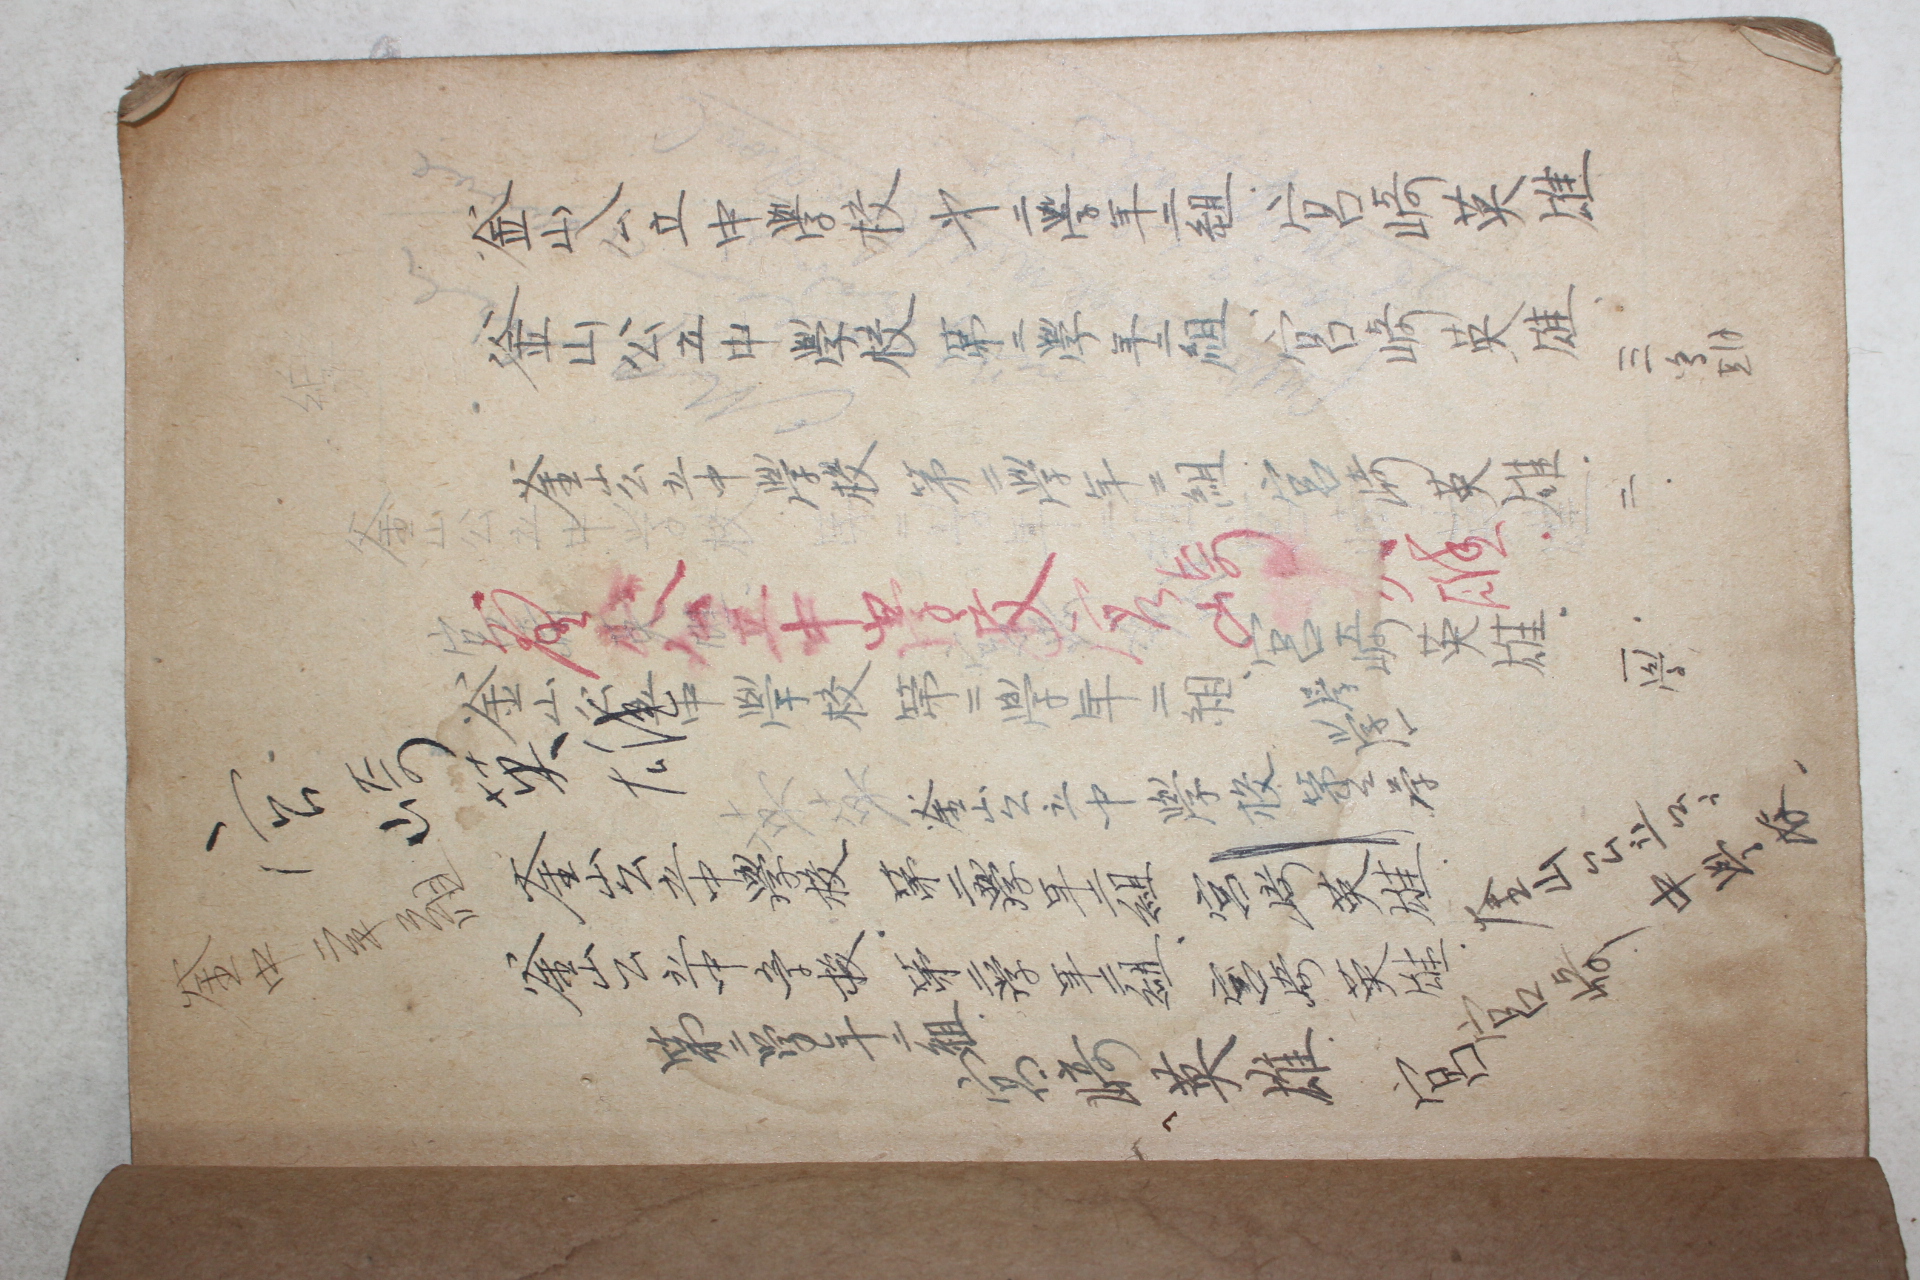 釜山公立中學校 オ二學年二組、宮崎英雄
釜山公立中學校 第二學年二組、宮崎英雄、
三
釜山公立中學校 第二學年二組 宮崎英雄.
二.
釜山公立中学校
組
釜山公立中學校 宮崎英雄
宮崎英雄
釜山公立中學校 第二學年二組、宮崎英雄.
一學
學
學
宮崎英雄
英
英
釜山公立中學校 第二学
釜山公立中學校 第二學年二組 宮崎英雄.
釜山公立
中學校.
釜中二年二組
釜山公立中学校. 第二學年二組、宮崎英雄.
宮崎
第二學年二組.
宮崎英雄. 宮